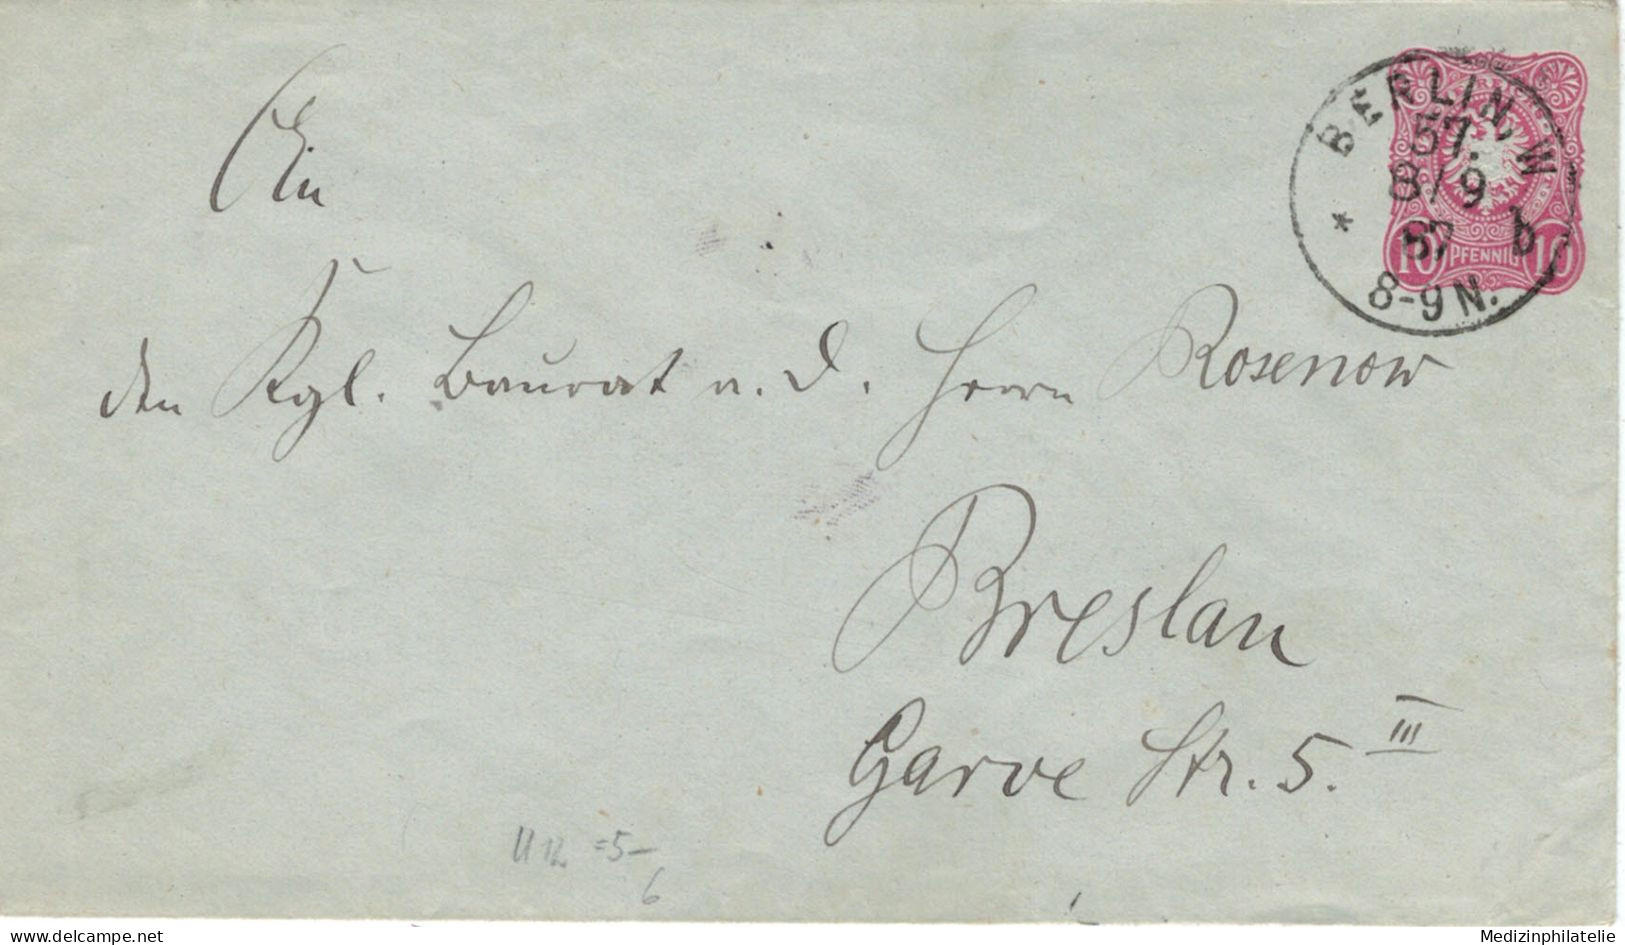 BERLIN, W
57.
8/9
87 b
8-9 N.
*
10 PFENNIG 10
An
den Kgl. Baurat a. D. Herrn Rosenow
Breslau
Garve Str. 5. III
U 12 =5-
6
delcampe.net
Medizinphilatelie